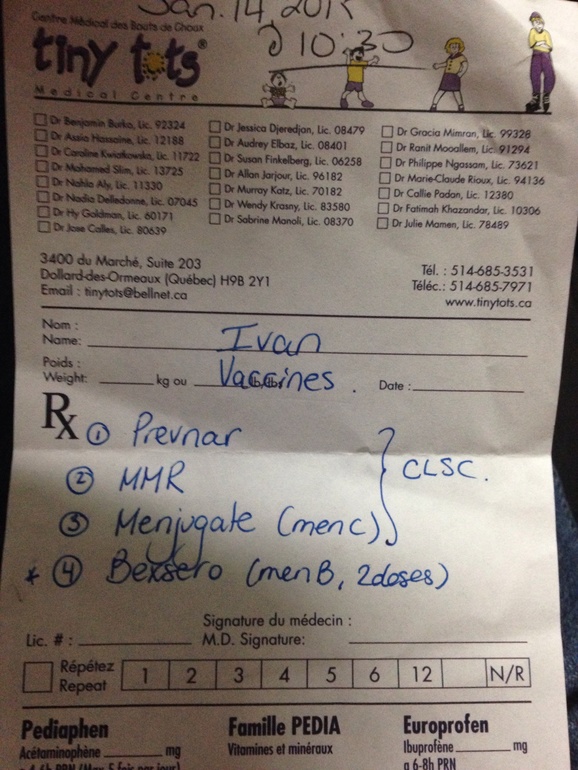 Jan. 14, 201
@ 10:30
Centre Médical des Bouts de Choux
tiny tots®
Medical Centre
Dr Benjamin Burko, Lic. 92324
Dr Assia Hassaine, Lic. 12188
Dr Caroline Kwiatkowska, Lic. 11722
Dr Mohamed Slim, Lic. 13725
Dr Nahla Aly, Lic. 11330
Dr Nadia Delledonne, Lic. 07045
Dr Hy Goldman, Lic. 60171
Dr Jose Calles, Lic. 80639
Dr Jessica Djeredjan, Lic. 08479
Dr Audrey Elbaz, Lic. 08401
Dr Susan Finkelberg, Lic. 06258
Dr Allan Jarjour, Lic. 96182
Dr Murray Katz, Lic. 70182
Dr Wendy Krasny, Lic. 83580
Dr Sabrine Manoli, Lic. 08370
Dr Gracia Mimran, Lic. 99328
Dr Ranit Mooallem, Lic. 91294
Dr Philippe Ngassam, Lic. 73621
Dr Marie-Claude Rioux, Lic. 94136
Dr Callie Padan, Lic. 12380
Dr Fatimah Khazandar, Lic. 10306
Dr Julie Mamen, Lic. 78489
3400 du Marché, Suite 203
Dollard-des-Ormeaux (Québec) H9B 2Y1
Email : tinytots@bellnet.ca
Tél. : 514-685-3531
Téléc.: 514-685-7971
www.tinytots.ca
Nom :
Name: Ivan
Poids :
Weight: kg ou Vaccines. Date :
Rx ① Prevnar
② MMR
③ Menjugate (men C) } CLSC.
* ④ Bexsero (men B, 2 doses)
Signature du médecin :
Lic. # : M.D. Signature:
Répétez
Repeat 1 2 3 4 5 6 12 N/R
Pediaphen
Acétaminophène mg
Famille PEDIA
Vitamines et minéraux
Europrofen
Ibuprofène mg
q 6-8h PRN